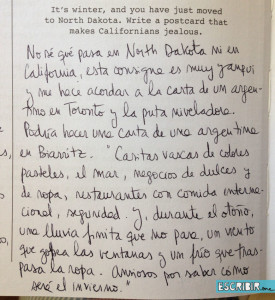 It's winter, and you have just moved
to North Dakota. Write a postcard that
makes Californians jealous.
No sé qué pasa en North Dakota ni en
California, esta consigna es muy yanqui
y me hace acordar a la carta de un argen-
tino en Toronto y la puta niveladora.
Podría hacer una carta de una argentina
en Biarritz. "Casitas vascas de colores
pasteles, el mar, negocios de dulces y
de ropa, restaurantes con comida interna-
cional, seguridad. Y, durante el otoño,
una lluvia finita que no para, un viento
que golpea las ventanas y un frío que tras-
pasa la ropa. Ansiosos por saber cómo
será el invierno."
ESCRIBIR.me